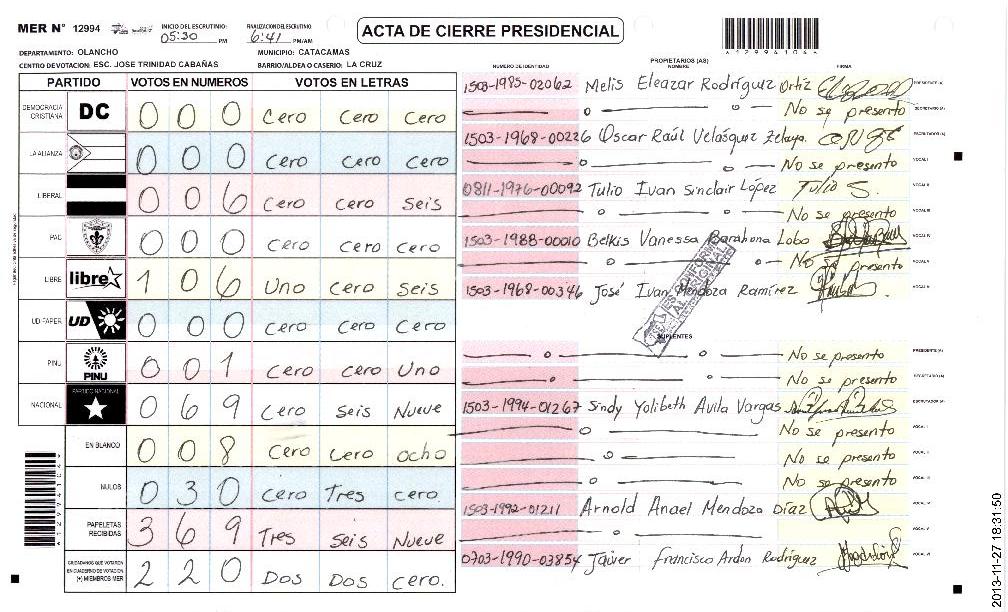 MER N° 12994
INICIO DEL ESCRUTINIO: 05:30 PM
FINALIZACION DEL ESCRUTINIO: 6:41 PM/AM
ACTA DE CIERRE PRESIDENCIAL
DEPARTAMENTO: OLANCHO
MUNICIPIO: CATACAMAS
CENTRO DE VOTACION: ESC. JOSE TRINIDAD CABAÑAS
BARRIO/ALDEA O CASERIO: LA CRUZ
PARTIDO VOTOS EN NUMEROS VOTOS EN LETRAS
DEMOCRACIA CRISTIANA DC 0 0 0 Cero Cero Cero
LA ALIANZA 0 0 0 Cero Cero Cero
LIBERAL 0 0 6 Cero Cero Seis
PAC 0 0 0 Cero Cero Cero
LIBRE libre 1 0 6 Uno Cero Seis
UD FAPER UD 0 0 0 Cero Cero Cero
PINU PINU 0 0 1 Cero Cero Uno
NACIONAL PARTIDO NACIONAL 0 6 9 Cero Seis Nueve
EN BLANCO 0 0 8 Cero Cero ocho
NULOS 0 3 0 Cero Tres cero.
PAPELETAS RECIBIDAS 3 6 9 Tres Seis Nueve
CIUDADANOS QUE VOTARON EN CUADERNO DE VOTACION (+) MIEMBROS MER 2 2 0 Dos Dos cero.
PROPIETARIOS (AS)
NUMERO DE IDENTIDAD NOMBRE FIRMA
1503-1985-02062 Melis Eleazar Rodríguez Ortiz PRESIDENTE (A)
No se presento SECRETARIO (A)
1503-1968-00226 Oscar Raúl Velásquez Zelaya ESCRUTADOR (A)
No se presento VOCAL I
0811-1976-00092 Tulio Ivan Sinclair López Tulio S. VOCAL II
No se presento VOCAL III
1503-1988-00010 Belkis Vanessa Barahona Lobo VOCAL IV
No se presento VOCAL V
1503-1968-00346 José Ivan Mendoza Ramírez VOCAL VI
ES CONFORME AL ORIGINAL
SUPLENTES
No se presento PRESIDENTE (A)
No se presento SECRETARIO (A)
1503-1994-01267 Sindy Yolibeth Avila Vargas ESCRUTADOR (A)
No se presento VOCAL I
No se presento VOCAL II
No se presento VOCAL III
1503-1992-01211 Arnold Anael Mendoza Díaz VOCAL IV
VOCAL V
0703-1990-03854 Javier Francisco Ardon Rodríguez VOCAL VI
2013-11-27 18:31:50